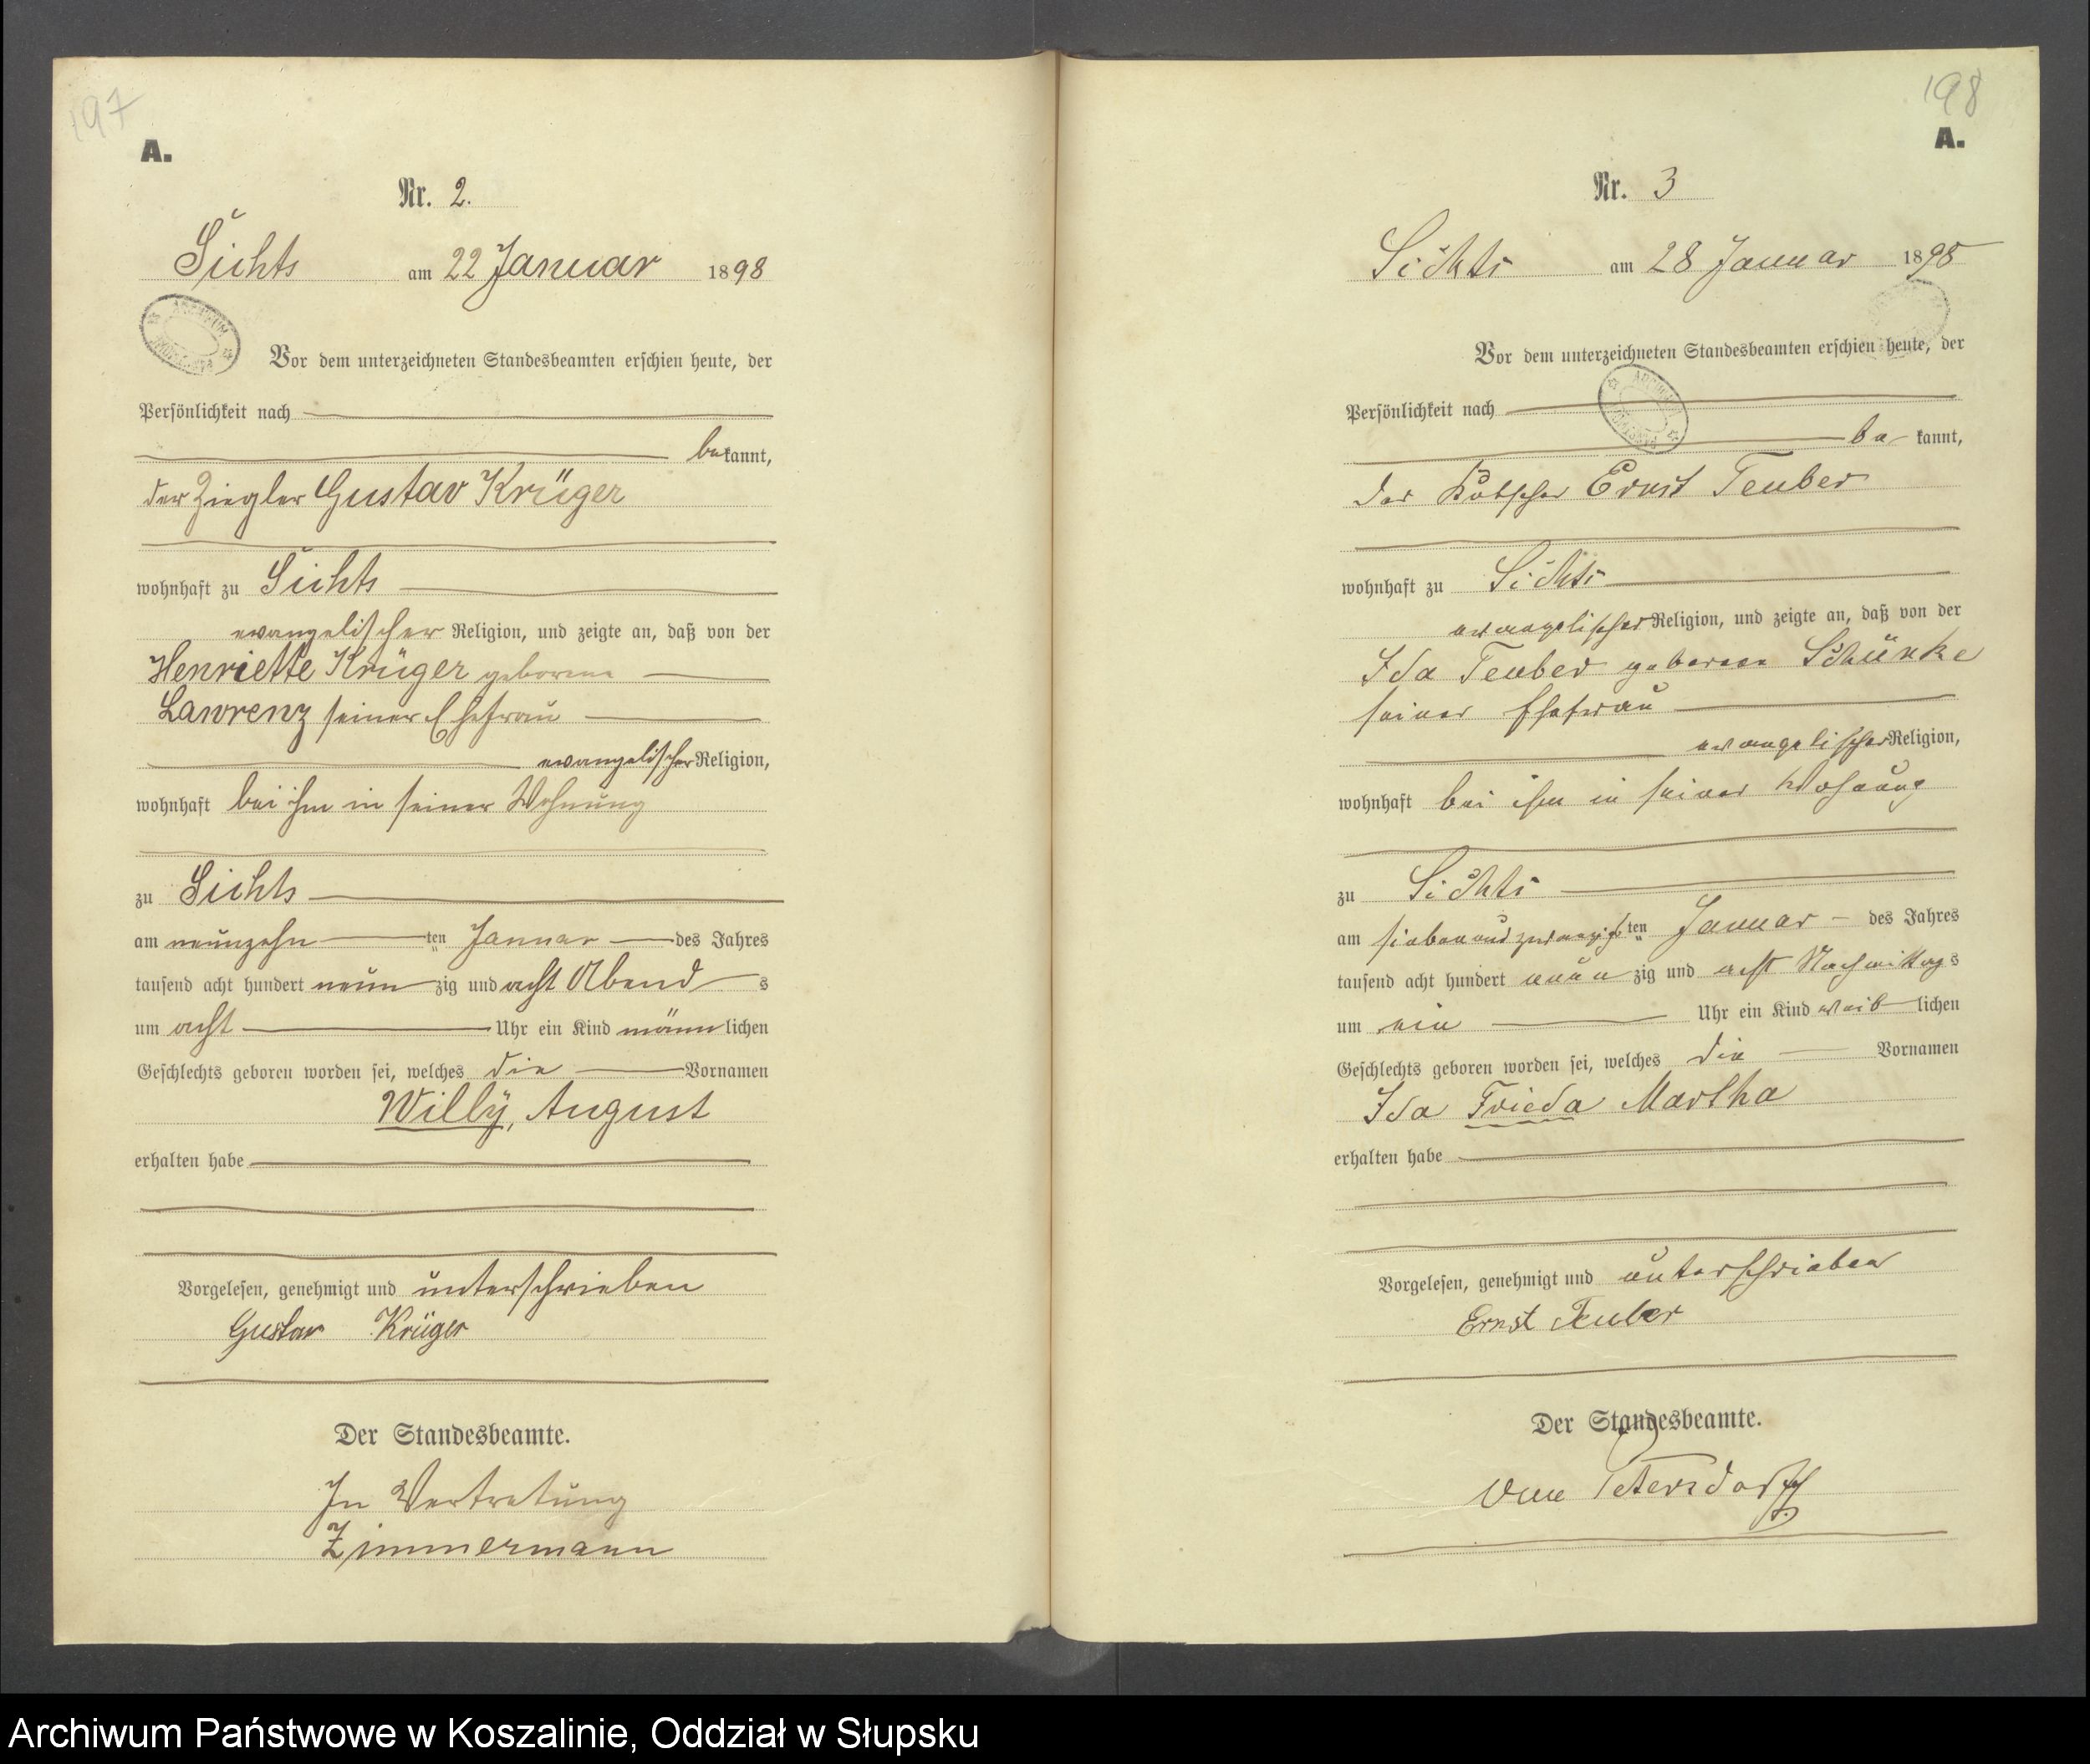 197
A.
Nr. 2.
Sichts am 22 Januar 1898
Vor dem unterzeichneten Standesbeamten erschien heute, der
Persönlichkeit nach
bekannt,
der Ziegler Gustav Krüger
wohnhaft zu Sichts
evangelischer Religion, und zeigte an, daß von der
Henriette Krüger geborene
Lawrenz seiner Ehefrau
evangelischer Religion,
wohnhaft bei ihm in seiner Wohnung
zu Sichts
am neunzehn ten Januar des Jahres
tausend acht hundert neun zig und acht Abend s
um acht Uhr ein Kind männlichen
Geschlechts geboren worden sei, welches die Vornamen
Willÿ, August
erhalten habe
Vorgelesen, genehmigt und unterschrieben
Gustav Krüger
Der Standesbeamte.
In Vertretung
Zimmermann
198
A.
Nr. 3
Sichts am 28 Januar 1898
Vor dem unterzeichneten Standesbeamten erschien heute, der
Persönlichkeit nach
be kannt,
der Kutscher Ernst Teuber
wohnhaft zu Sichts
evangelischer Religion, und zeigte an, daß von der
Ida Teuber geborene Schünke
seiner Ehefrau
evangelischer Religion,
wohnhaft bei ihm in seiner Wohnung
zu Sichts
am siebenundzwanzigsten Januar des Jahres
tausend acht hundert neun zig und acht Nachmittags
um ein Uhr ein Kind weib lichen
Geschlechts geboren worden sei, welches die Vornamen
Ida Frieda Martha
erhalten habe
Vorgelesen, genehmigt und unterschrieben
Ernst Teuber
Der Standesbeamte.
von Petersdorff
Archiwum Państwowe w Koszalinie, Oddział w Słupsku